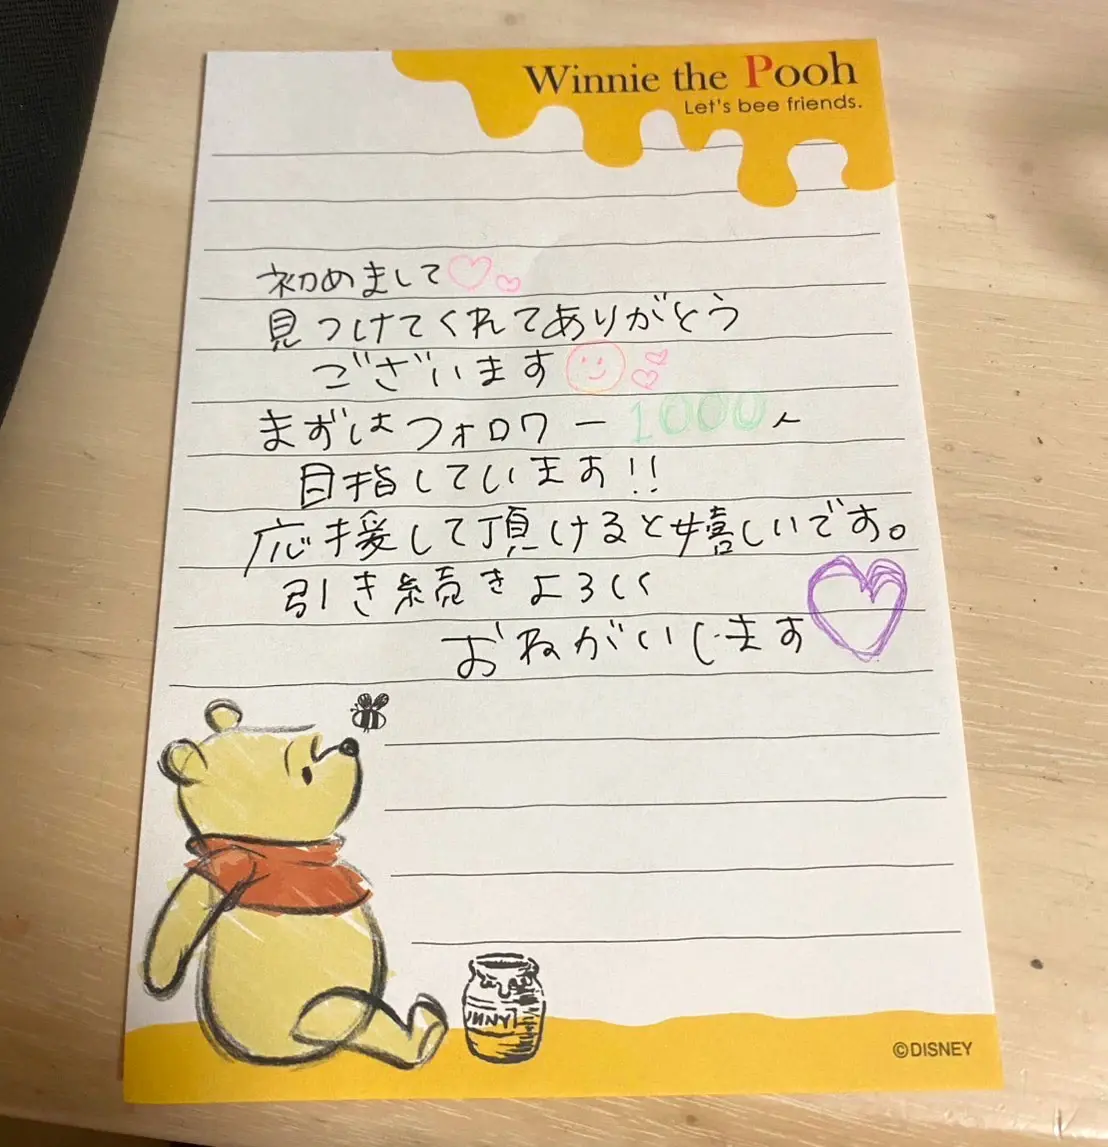 Winnie the Pooh
Let's bee friends.
初めまして♡♡
見つけてくれてありがとう
ございます
まずはフォロワー1000人
目指しています!!
応援して頂けると嬉しいです。
引き続きよろしく
おねがいします♡
©DISNEY